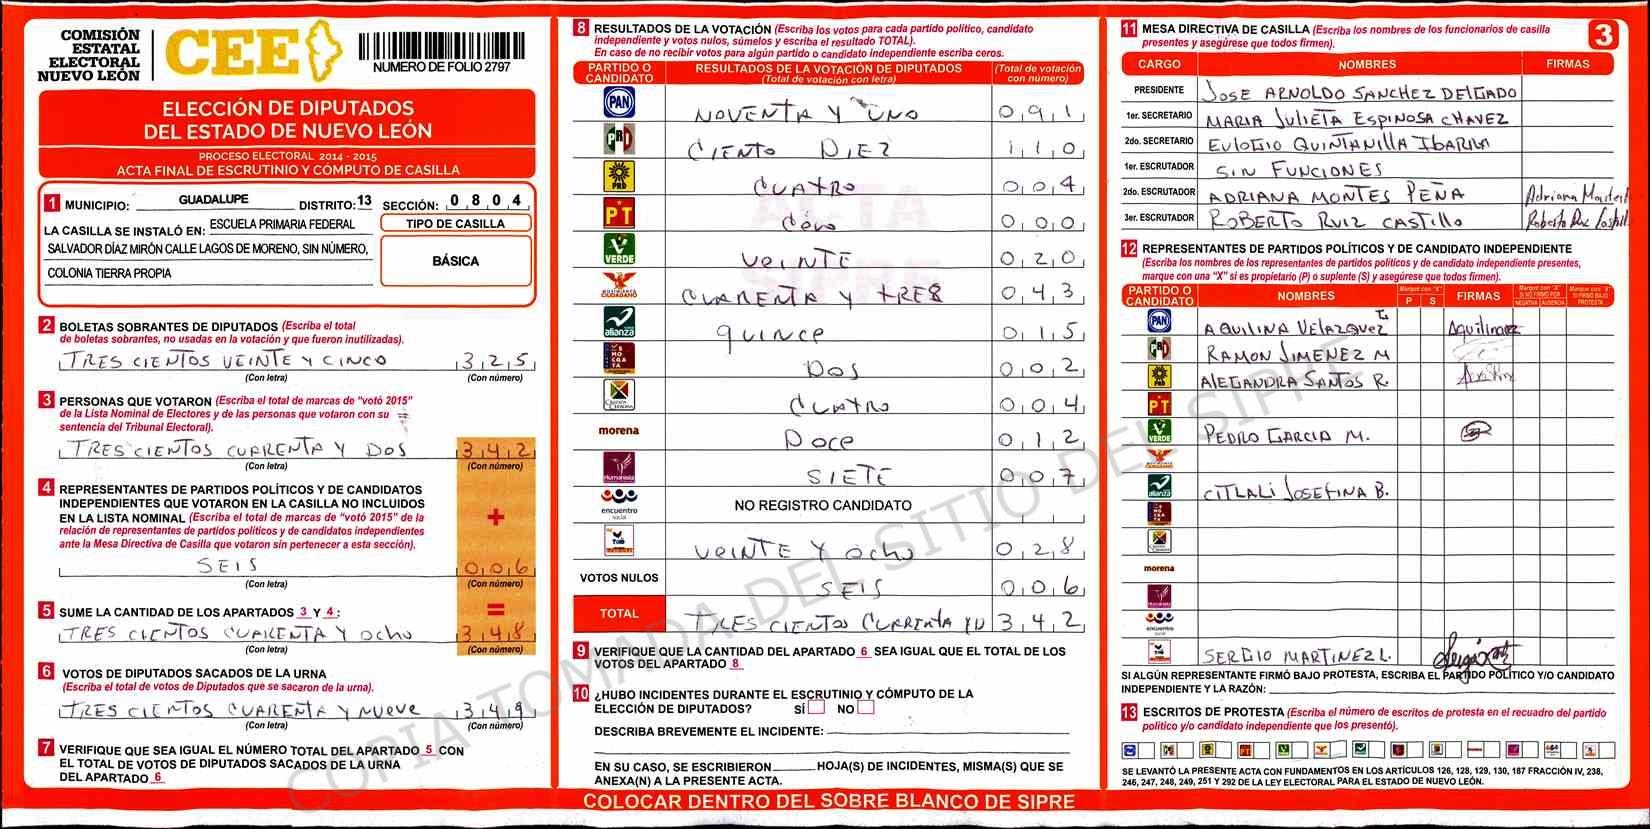 COMISIÓN
ESTATAL
ELECTORAL
NUEVO LEÓN
CEE
NUMERO DE FOLIO 2797
ELECCIÓN DE DIPUTADOS
DEL ESTADO DE NUEVO LEÓN
PROCESO ELECTORAL 2014 - 2015
ACTA FINAL DE ESCRUTINIO Y CÓMPUTO DE CASILLA
1 MUNICIPIO: GUADALUPE DISTRITO: 13 SECCIÓN: 0 8 0 4
LA CASILLA SE INSTALÓ EN: ESCUELA PRIMARIA FEDERAL
SALVADOR DÍAZ MIRÓN CALLE LAGOS DE MORENO, SIN NÚMERO,
COLONIA TIERRA PROPIA
TIPO DE CASILLA
BÁSICA
2 BOLETAS SOBRANTES DE DIPUTADOS (Escriba el total
de boletas sobrantes, no usadas en la votación y que fueron inutilizadas).
TRES CIENTOS VEINTE Y CINCO 3 2 5
(Con letra) (Con número)
3 PERSONAS QUE VOTARON (Escriba el total de marcas de “votó 2015”
de la Lista Nominal de Electores y de las personas que votaron con su
sentencia del Tribunal Electoral).
TRES CIENTOS CUARENTA Y DOS 3 4 2
(Con letra) (Con número)
4 REPRESENTANTES DE PARTIDOS POLÍTICOS Y DE CANDIDATOS
INDEPENDIENTES QUE VOTARON EN LA CASILLA NO INCLUIDOS
EN LA LISTA NOMINAL (Escriba el total de marcas de “votó 2015” de la
relación de representantes de partidos políticos y de candidatos independientes
ante la Mesa Directiva de Casilla que votaron sin pertenecer a esta sección).
+
SEIS 0 0 6
(Con letra) (Con número)
=
5 SUME LA CANTIDAD DE LOS APARTADOS 3 Y 4 :
TRES CIENTOS CUARENTA Y OCHO 3 4 8
(Con letra) (Con número)
6 VOTOS DE DIPUTADOS SACADOS DE LA URNA
(Escriba el total de votos de Diputados que se sacaron de la urna).
TRES CIENTOS CUARENTA Y NUEVE 3 4 9
(Con letra) (Con número)
7 VERIFIQUE QUE SEA IGUAL EL NÚMERO TOTAL DEL APARTADO 5 CON
EL TOTAL DE VOTOS DE DIPUTADOS SACADOS DE LA URNA
DEL APARTADO 6
8 RESULTADOS DE LA VOTACIÓN (Escriba los votos para cada partido político, candidato
independiente y votos nulos, súmelos y escriba el resultado TOTAL).
En caso de no recibir votos para algún partido o candidato independiente escriba ceros.
PARTIDO O CANDIDATO RESULTADOS DE LA VOTACIÓN DE DIPUTADOS (Total de votación con letra) (Total de votación con número)
PAN NOVENTA Y UNO 0 9 1
PRI CIENTO DIEZ 1 1 0
PRD CUATRO 0 0 4
PT CERO 0 0 0
VERDE VEINTE 0 2 0
MOVIMIENTO CIUDADANO CUARENTA Y TRES 0 4 3
alianza quince 0 1 5
DOS 0 0 2
CUATRO 0 0 4
morena DOCE 0 1 2
Humanista SIETE 0 0 7
encuentro social NO REGISTRO CANDIDATO
VEINTE Y OCHO 0 2 8
VOTOS NULOS SEIS 0 0 6
TOTAL TRES CIENTOS CUARENTA Y D 3 4 2
ACTA
SIPRE
9 VERIFIQUE QUE LA CANTIDAD DEL APARTADO 6 SEA IGUAL QUE EL TOTAL DE LOS
VOTOS DEL APARTADO 8
10 ¿HUBO INCIDENTES DURANTE EL ESCRUTINIO Y CÓMPUTO DE LA
ELECCIÓN DE DIPUTADOS? SÍ NO
DESCRIBA BREVEMENTE EL INCIDENTE:
EN SU CASO, SE ESCRIBIERON HOJA(S) DE INCIDENTES, MISMA(S) QUE SE
ANEXA(N) A LA PRESENTE ACTA.
COLOCAR DENTRO DEL SOBRE BLANCO DE SIPRE
11 MESA DIRECTIVA DE CASILLA (Escriba los nombres de los funcionarios de casilla
presentes y asegúrese que todos firmen).
3
CARGO NOMBRES FIRMAS
PRESIDENTE JOSE ARNOLDO SANCHEZ DELGADO
1er. SECRETARIO MARIA JULIETA ESPINOSA CHAVEZ
2do. SECRETARIO EULOGIO QUINTANILLA IBARRA
1er. ESCRUTADOR SIN FUNCIONES
2do. ESCRUTADOR ADRIANA MONTES PEÑA Adriana Montes
3er. ESCRUTADOR ROBERTO RUIZ CASTILLO Roberto Ruiz Castillo
12 REPRESENTANTES DE PARTIDOS POLÍTICOS Y DE CANDIDATO INDEPENDIENTE
(Escriba los nombres de los representantes de partidos políticos y de candidato independiente presentes,
marque con una “X” si es propietario (P) o suplente (S) y asegúrese que todos firmen).
PARTIDO O CANDIDATO NOMBRES Marque con "X" P S FIRMAS Marque con "X" SI NO FIRMÓ POR NEGATIVA AUSENCIA Marque con "X" SI FIRMÓ BAJO PROTESTA
PAN AQUILINA VELAZQUEZ
PRI RAMON JIMENEZ M
PRD ALEGANDRA SANTOS R.
PT
VERDE PEDRO GARCIA M.
CIUDADANO
alianza CITLALI JOSEFINA B.
morena
Humanista
encuentro social
SERGIO MARTINEZ L.
SI ALGÚN REPRESENTANTE FIRMÓ BAJO PROTESTA, ESCRIBA EL PARTIDO POLÍTICO Y/O CANDIDATO
INDEPENDIENTE Y LA RAZÓN:
13 ESCRITOS DE PROTESTA (Escriba el número de escritos de protesta en el recuadro del partido
político y/o candidato independiente que los presentó).
SE LEVANTÓ LA PRESENTE ACTA CON FUNDAMENTOS EN LOS ARTÍCULOS 126, 128, 129, 130, 187 FRACCIÓN IV, 238,
246, 247, 248, 249, 251 Y 292 DE LA LEY ELECTORAL PARA EL ESTADO DE NUEVO LEÓN.
COPIA TOMADA DEL SITIO DEL SIPRE